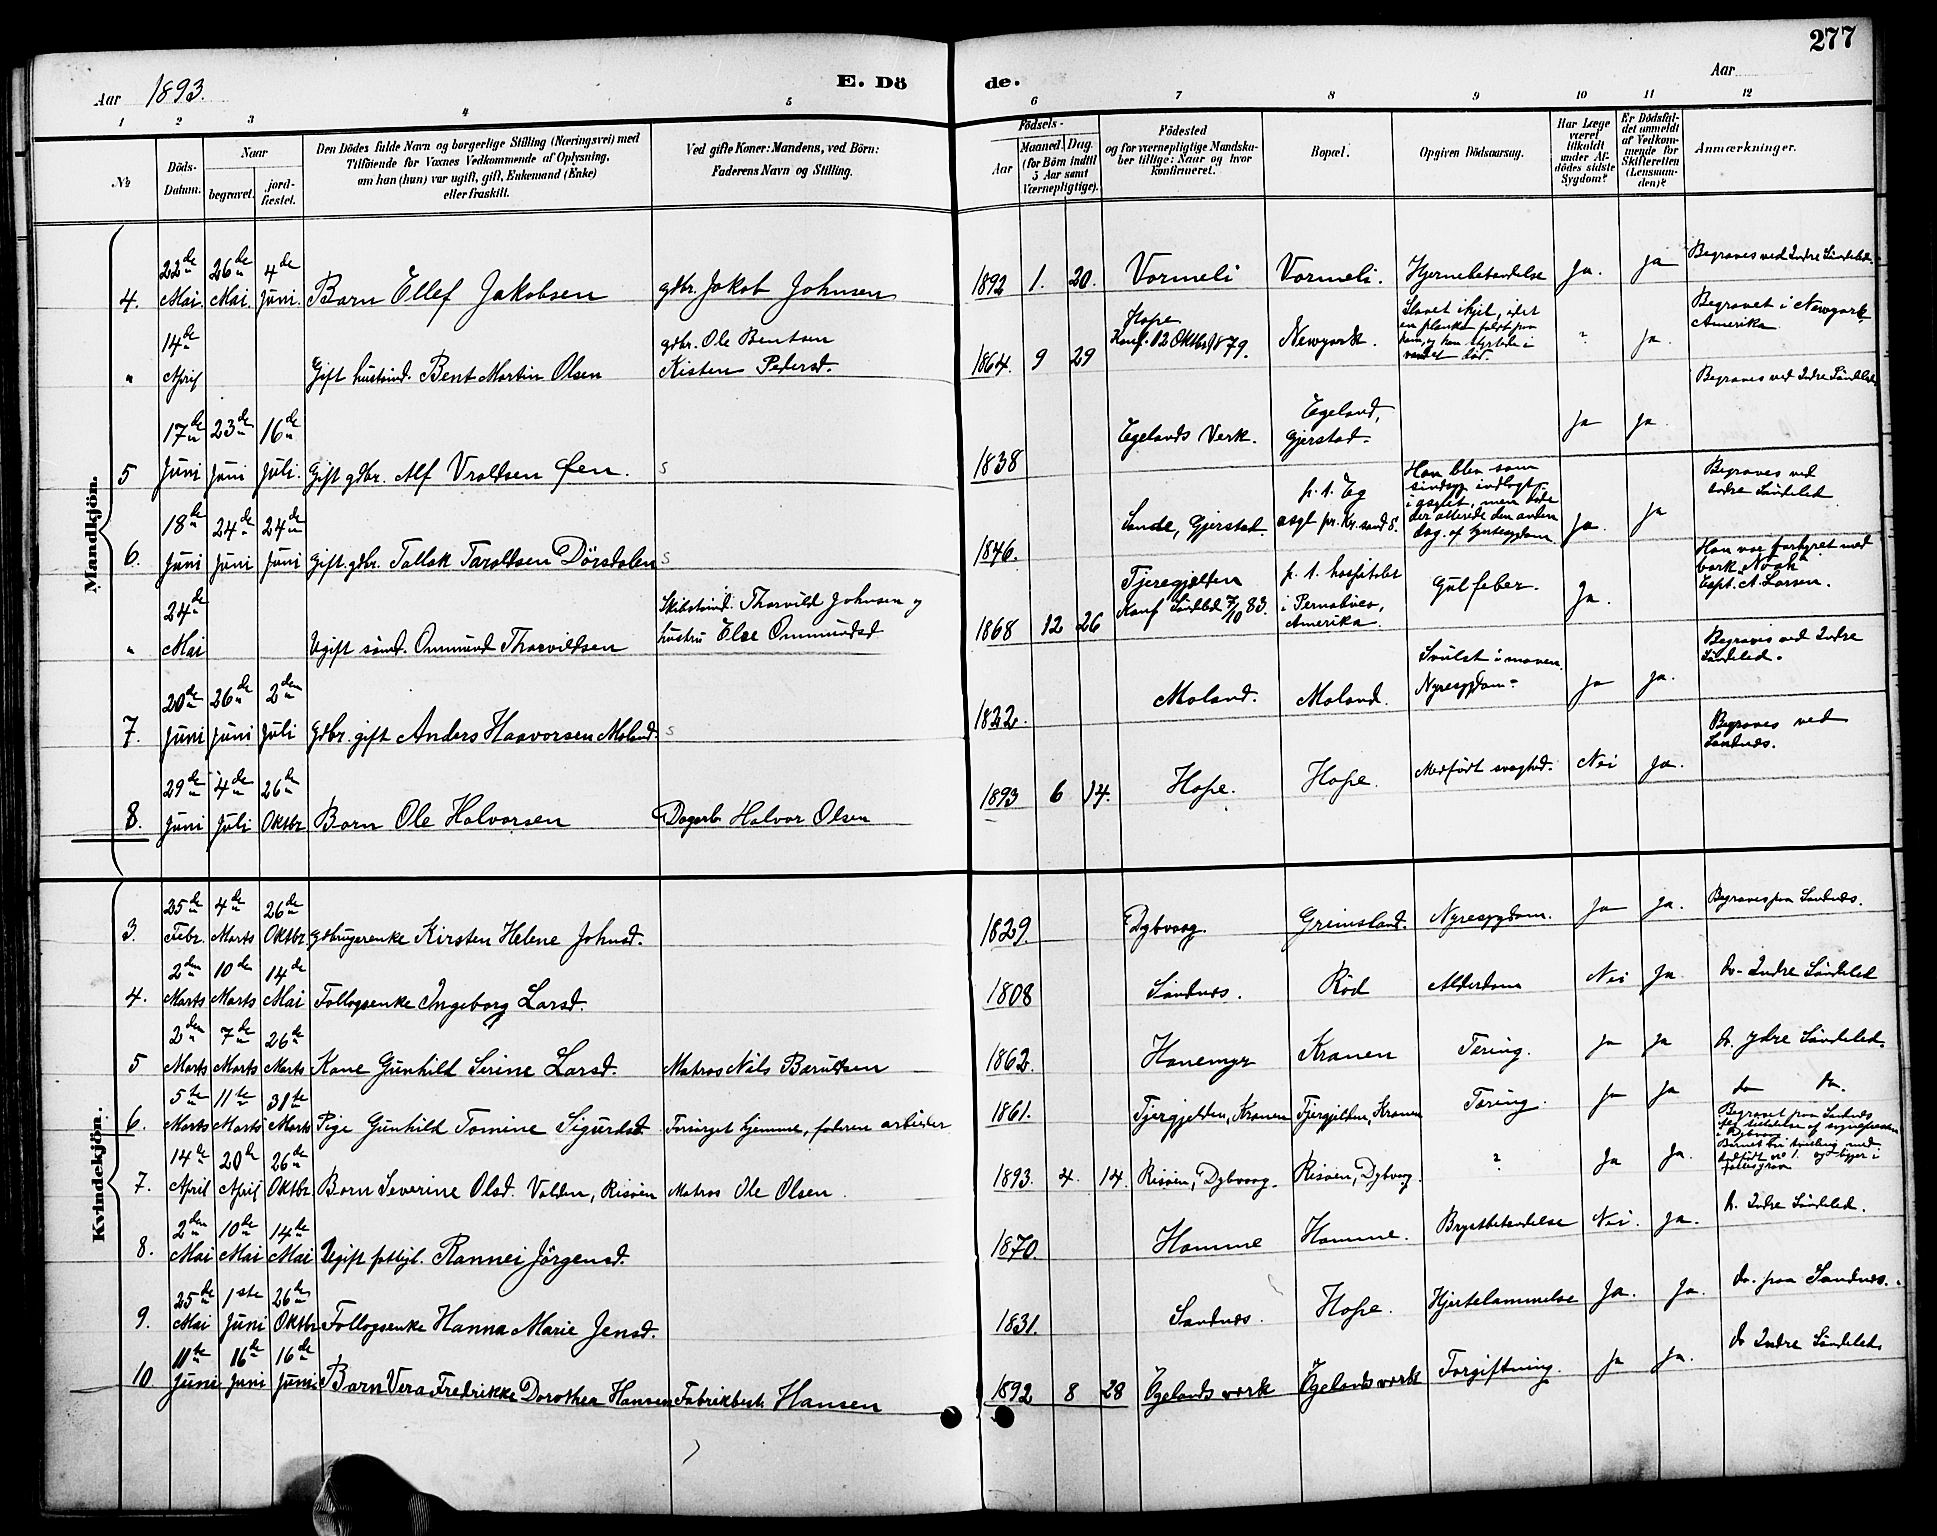 277
Aar 1893.
E. Dö
de.
Aar
1 2 3 4 5 6 7 8 9 10 11 12
№
Döds-
Datum.
Naar
begravet.
jord-
fæstet.
Den Dödes fulde Navn og borgerlige Stilling (Næringsvei) med
Tilföiende for Voxnes Vedkommende af Oplysning,
om han (hun) var ugift, gift, Enkemand (Enke)
eller fraskilt.
Ved gifte Koner: Mandens, ved Börn:
Faderens Navn og Stilling.
Födsels-
Aar
Maaned Dag
(for Börn indtil
5 Aar samt
Værnepligtige).
Födested
og for værnepligtige Mandska-
ber tillige: Naar og hvor
Konfirmeret.
Bopæl.
Opgiven Dödsaarsag.
Har Læge
været
tilkaldt
under Af-
dödes sidste
Sygdom?
Er Dödsfal-
det anmeldt
af Vedkom-
mende for
Skifteretten
(Lensman-
den)?
Anmærkninger.
Mandkjön.
22de 26de 4de
4. Mai. Mai. Juni. Barn Ellef Jakobsen gdbr. Jakob Johnsen 1892 1. 20. Vormeli Vormeli. Hjernebetændelse Ja. Ja Begraves ved Indre Söndeled.
14de
" April Gift hustind. Bent Martin Olsen
gdbr. Ole Bentsen
Kisten Pedersd.
1864. 9 29
Hope
Konf. 12 Oktbr. 1879.
Newyork.
Slaaet ihjel, idet
en planke faldt paa
ham, og han styrtede i
vandet död.
" Ja.
Begravet i Newyork,
Amerika
17de 23de 16de
5 Juni Juni Juli. Gift gdbr. Alf Vroldsen Öen. s 1838 Egelands Verk.
Egeland,
Gjerstad.
Ja Ja. Begraves ved Indre Söndeled
18de 24de 24de
6. Juni Juni Juni Gift gdbr. Tallak Taraldsen Dörsdalen s 1846. Sande, Gjerstad.
p. t. Eg
asyl pr. Kr.sand S.
Han blev som
sindsyg indlagt
i asylet, men döde
der allerede den anden
dag. af hjertesygdom
Ja. Ja
Begraves ved
Indre Söndeled
24de
" Mai Ugift sömd. Ommund Thorvildsen
Skibstömd. Thorvild Johnsen og
hustru Else Ommundsd
1868 12 26
Tjeregjelden
Konf Söndeled 7/10 83.
p. t. hospitalet
i Pernabuco,
Amerika
Gul feber. Ja.
Han var forhyret med
bark "Noah"
Capt. A. Larsen.
20de 26de 2den
7. Juni Juni Juli Gdbr. gift Anders Haavorsen Moland. s 1822. Moland. Moland.
Svulst i maven.
Nyresygdom.
Ja Ja.
Begraves ved Indre
Söndeled.
29de 4de 26de
8. Juni Juli Oktbr Barn Ole Halvorsen Dagarb. Halvor Olsen 1893 6 14. Hope. Hope. Medfödt svaghed. Nei Ja.
Begraves ved
Sandnæs.
Kvindekjön.
25de 4de 26de
3. Febr. Marts Oktbr Gdbrugerenke Kirsten Helene Johnsd. 1829. Dybvaag. Grimsland. Nyresygdom. Ja Ja. Begraves paa Sandnæs.
2den 10de 14de
4. Marts Marts Mai Follogsenke Ingeborg Larsd. 1808 Sandnæs. Röd Alderdom Nei Ja. do. Indre Söndeled
2den 7de 26de
5 Marts Marts Marts Kone Gunhild Serine Larsd. Matros Nils Baruldsen 1862. Hanemyr Kranen Tæring. Ja Ja do. Ydre Söndeled.
5te 11te 31te
6. Marts Marts Marts Pige Gunhild Tomine Sigurdsd. Forsörget hjemme, faderen arbeider 1861. Tjergjelden, Kranen Tjergjelden, Kranen Tæring. Ja Ja do do.
14de 20de 26de
7. April April Oktbr Barn Severine Olsd. Valden, Risöen Matros Ole Olsen. 1893. 4. 14. Risöen, Dybvaag. Risöen, Dybvaag. ? Ja Ja.
Begravet paa Sandnæs
i Dybvaag
Barnet var tvilling med
dödfödt no 1. og ligger i
fællesgrav
2den 10de 14de
8. Mai Mai Mai Ugift fattigl. Rannei Jörgensd. 1870. Homme Homme. Brystbetændelse Nei. Ja. do. Indre Söndeled.
25de 1ste 26de
9. Mai Juni Oktbr Follogsenke Hanna Marie Jensd. 1831. Sandnæs. Hope. Hjertelammelse Ja. Ja. do. paa Sandnæs.
11te 16de 16de
10 Juni Juni Juni. Barn Vera Fredrikke Dorothea Hansen Fabrikbest. Hansen 1892 8 28 Egelands værk Egelands værk Forgiftning. Ja Ja. do Indre Söndeled.